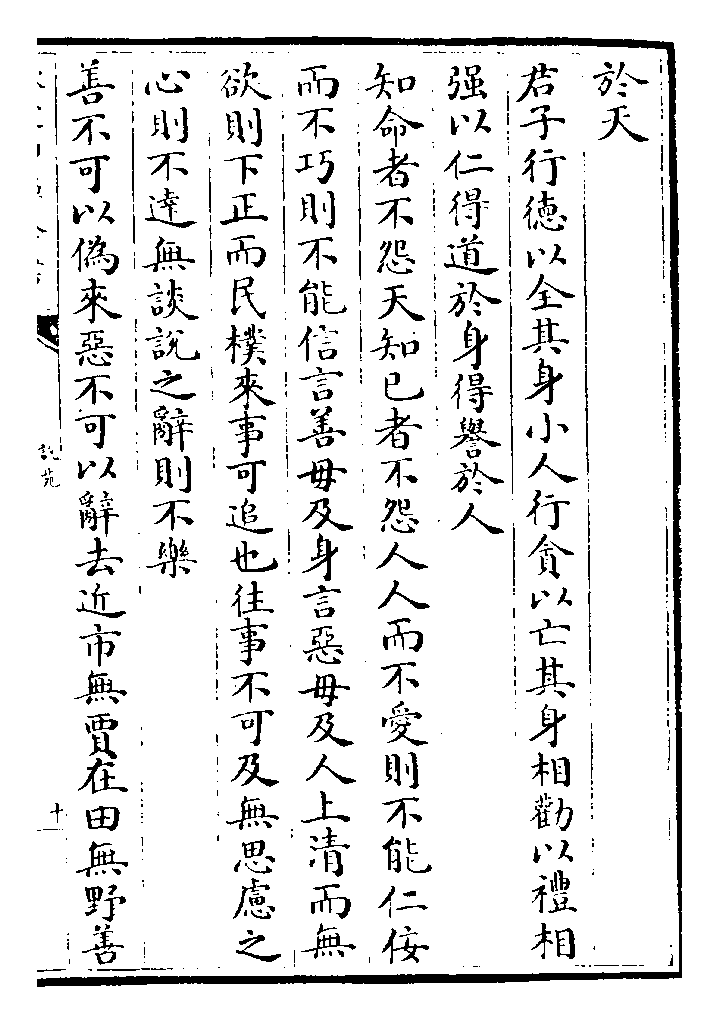 於天
君子行德以全其身小人行貪以亡其身相勸以禮相
强以仁得道於身得譽於人
知命者不怨天知已者不怨人人而不愛則不能仁佞
而不巧則不能信言善毋及身言惡毋及人上清而無
欲則下正而民樸來事可追也往事不可及無思慮之
心則不達無談說之辭則不樂
善不可以偽來惡不可以辭去近市無賈在田無野善
說苑
十